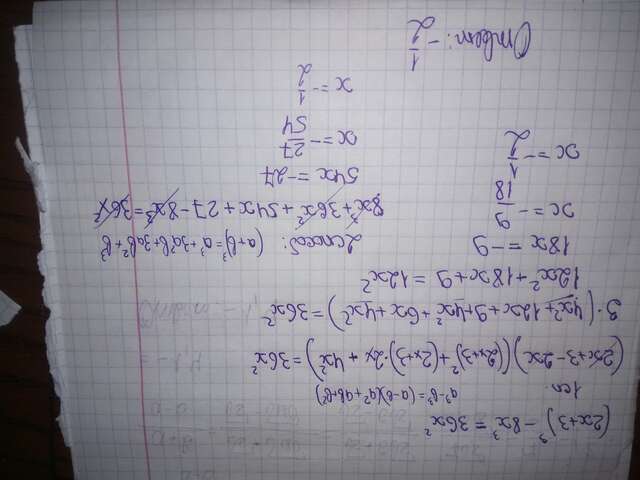 (2x+3)³ - 8x³ = 36x²
1сп. a³-b³=(a-b)(a²+ab+b²)
(2x+3-2x)((2x+3)²+(2x+3)·2x+4x²)=36x²
3·(4x²+12x+9+4x²+6x+4x²)=36x²
12x²+18x+9=12x²
18x=-9
x=-9/18
x=-1/2
2способ: (a+b)³=a³+3a²b+3ab²+b³
8x³+36x²+54x+27-8x³=36x²
54x=-27
x=-27/54
x=-1/2
Ответ: -1/2